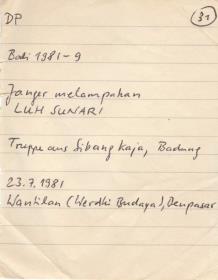 DP
31
Bali 1981-9
Janger melampahan
LUH SUNARI
Truppe aus Sibang Kaja, Badung
23.7.1981
Wantilan (Werdhi Budaya), Denpasar